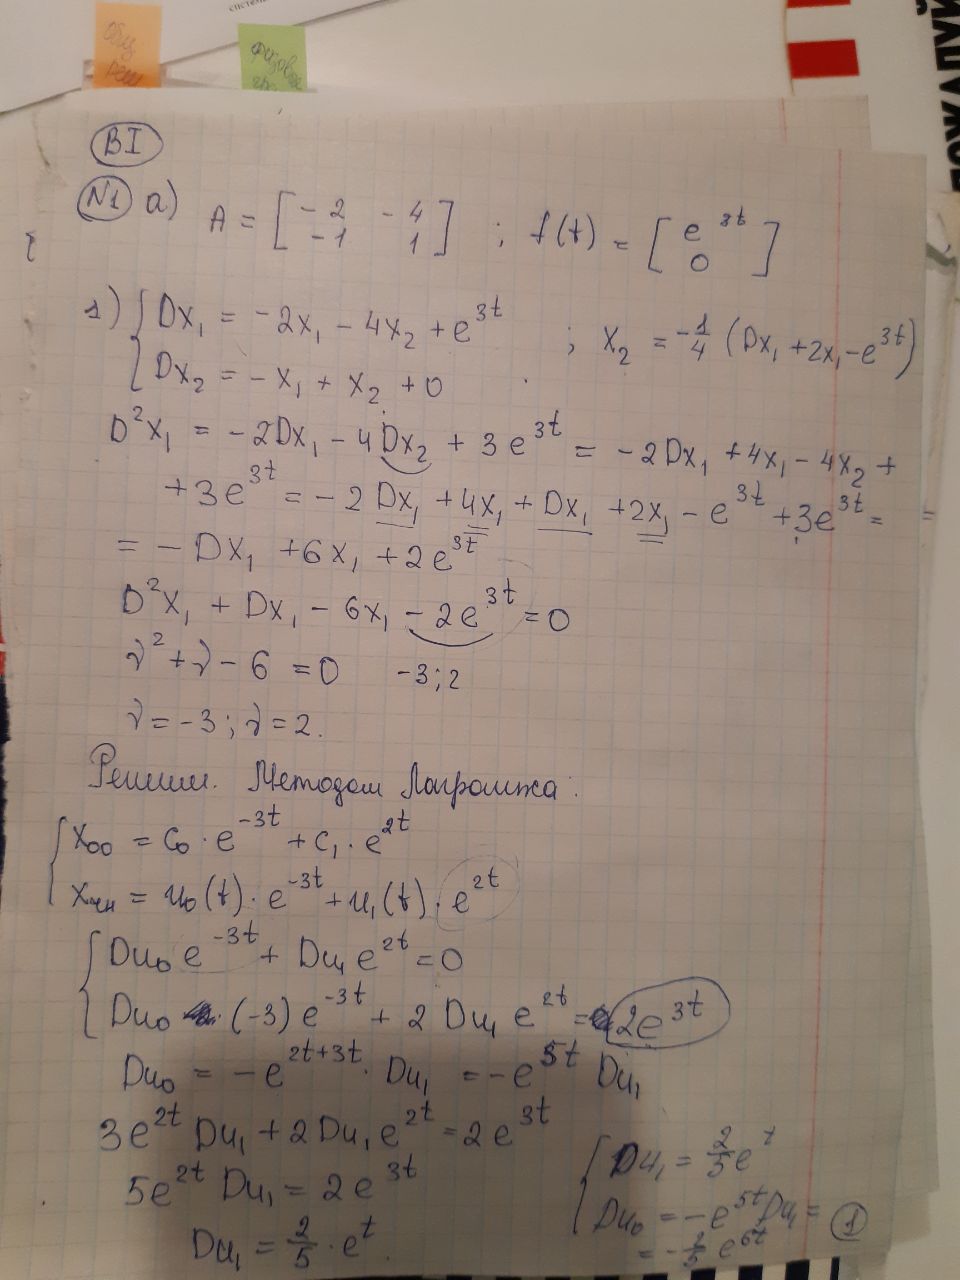 систем
общ. реш
фазовое
ВI
N1 а) A = [-2 -4; -1 1] ; f(t) = [e^{3t}; 0]
1) { Dx₁ = -2x₁ - 4x₂ + e^{3t} ; x₂ = -1/4 (Dx₁ + 2x₁ - e^{3t})
Dx₂ = -x₁ + x₂ + 0
D²x₁ = -2Dx₁ - 4Dx₂ + 3e^{3t} = -2Dx₁ + 4x₁ - 4x₂ +
+ 3e^{3t} = -2Dx₁ + 4x₁ + Dx₁ + 2x₁ - e^{3t} + 3e^{3t} =
= -Dx₁ + 6x₁ + 2e^{3t}
D²x₁ + Dx₁ - 6x₁ - 2e^{3t} = 0
λ² + λ - 6 = 0 -3; 2
λ = -3; λ = 2.
Решим. Методом Лагранжа:
{ x₀₀ = C₀ · e^{-3t} + C₁ · e^{2t}
xчн = u₀(t) · e^{-3t} + u₁(t) · e^{2t}
{ Du₀ e^{-3t} + Du₁ e^{2t} = 0
Du₀ (-3) e^{-3t} + 2 Du₁ e^{2t} = 2e^{3t}
Du₀ = -e^{2t+3t} · Du₁ = -e^{5t} Du₁
3e^{2t} Du₁ + 2Du₁ e^{2t} = 2e^{3t}
5e^{2t} Du₁ = 2e^{3t}
Du₁ = 2/5 · e^t.
{ Du₁ = 2/5 e^t
Du₀ = -e^{5t} Du₁ =
= -2/5 e^{6t}
1